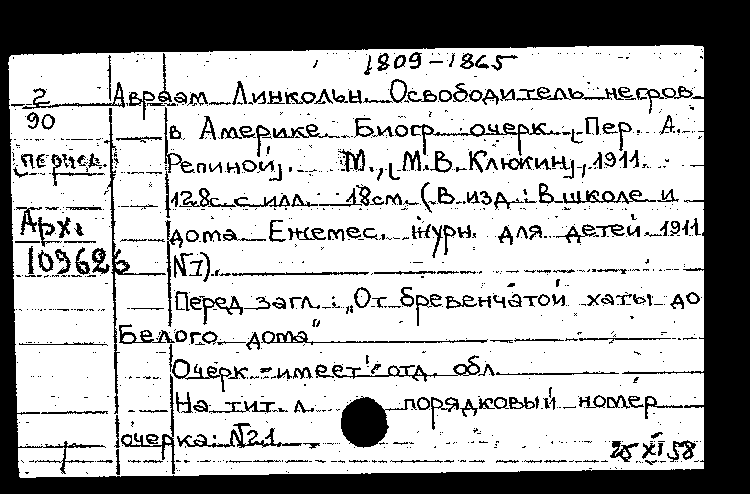 1809-1865
2
90
[период.]
Арх.
109626
Авраам Линкольн. Освободитель негров
в Америке. Биогр. очерк. [Пер. А.
Репиной]. М., [М.В. Клюкин], 1911.
128 с. с илл. 18см. (В изд.: В школе и
дома. Ежемес. журн. для детей. 1911.
№7).
Перед загл.: "От бревенчатой хаты до
Белого дома"
Очерк имеет отд. обл.
На тит. л. порядковый номер
очерка: №21.
25 XI 58